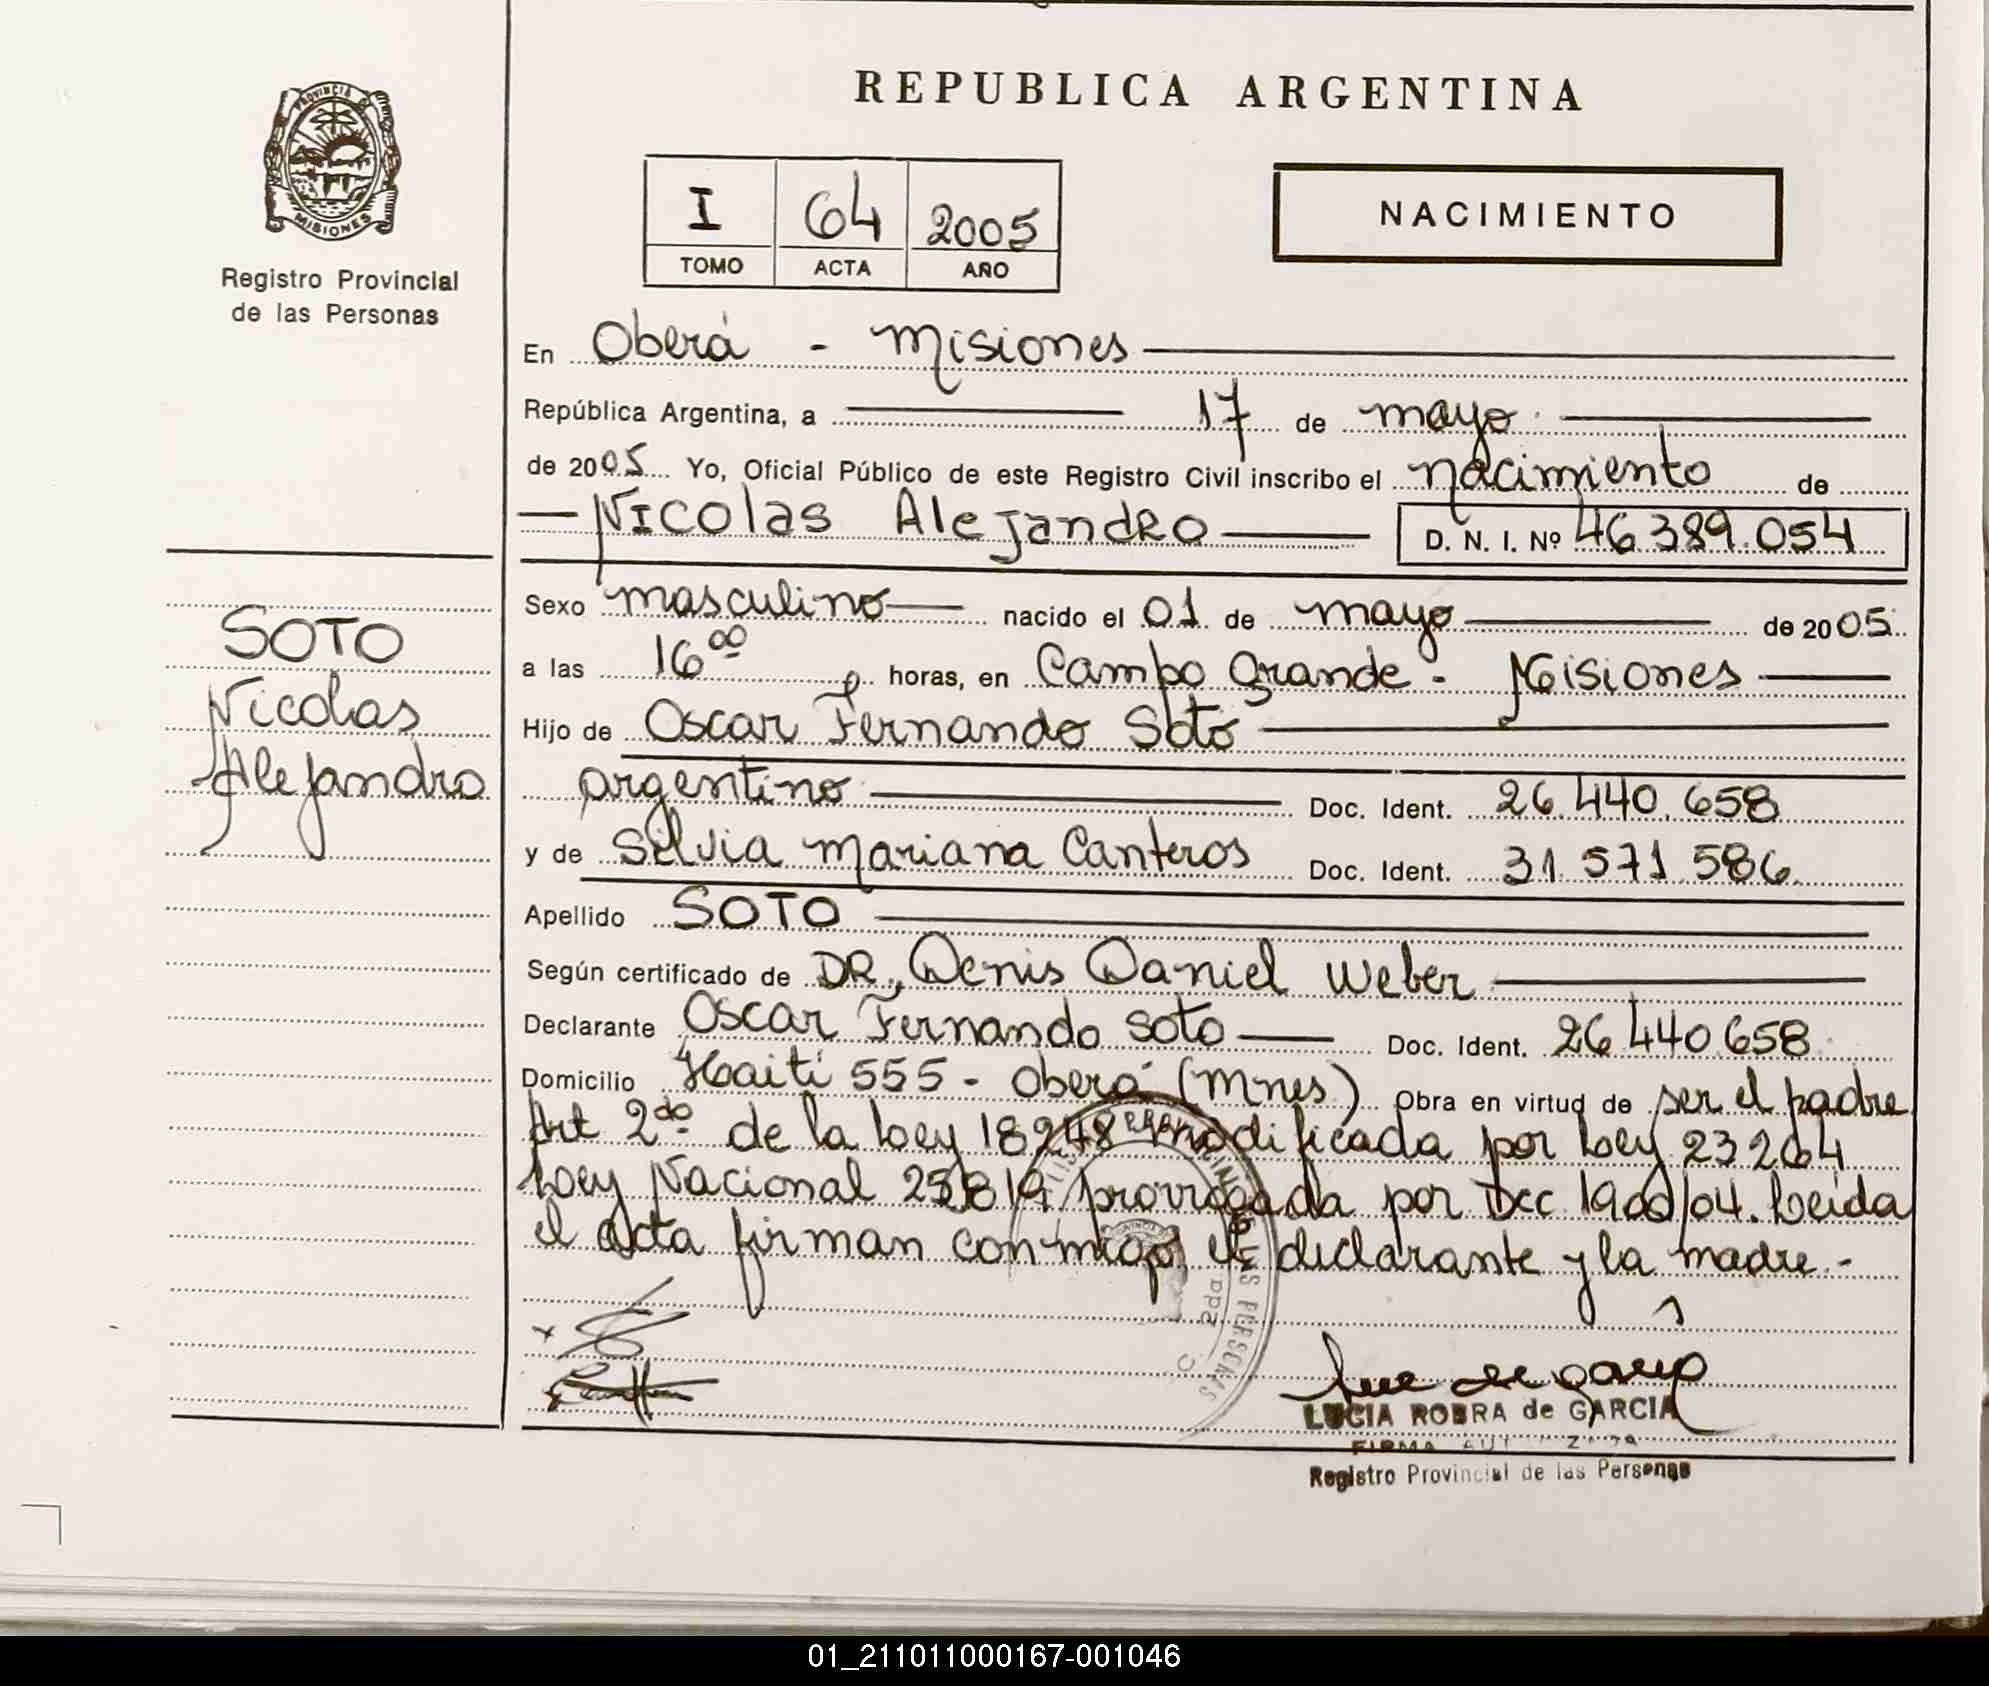 REPUBLICA ARGENTINA
PROVINCIA DE MISIONES
Registro Provincial
de las Personas
I 64 2005
TOMO ACTA AÑO
NACIMIENTO
En Oberá - Misiones
República Argentina, a 17 de mayo
de 2005 Yo, Oficial Público de este Registro Civil inscribo el nacimiento de
Nicolas Alejandro D. N. I. Nº 46.389.054
SOTO
Nicolas
Alejandro
Sexo masculino nacido el 01 de mayo de 2005
a las 16 00 horas, en Campo Grande - Misiones
Hijo de Oscar Fernando Soto
argentino Doc. Ident. 26.440.658
y de Silvia Mariana Canteros Doc. Ident. 31.571.586
Apellido SOTO
Según certificado de DR. Denis Daniel Weber
Declarante Oscar Fernando Soto Doc. Ident. 26.440.658
Domicilio Haiti 555 - Oberá (Mnes) Obra en virtud de ser el padre
Art 2do de la Ley 18248 modificada por Ley 23264
Ley Nacional 25819 prorrogada por Dec 1900/04. Leida
el acta firman conmigo, el declarante y la madre.-
LUCIA ROBRA de GARCIA
FIRMA AUTORIZADA
Registro Provincial de las Personas
01_211011000167-001046